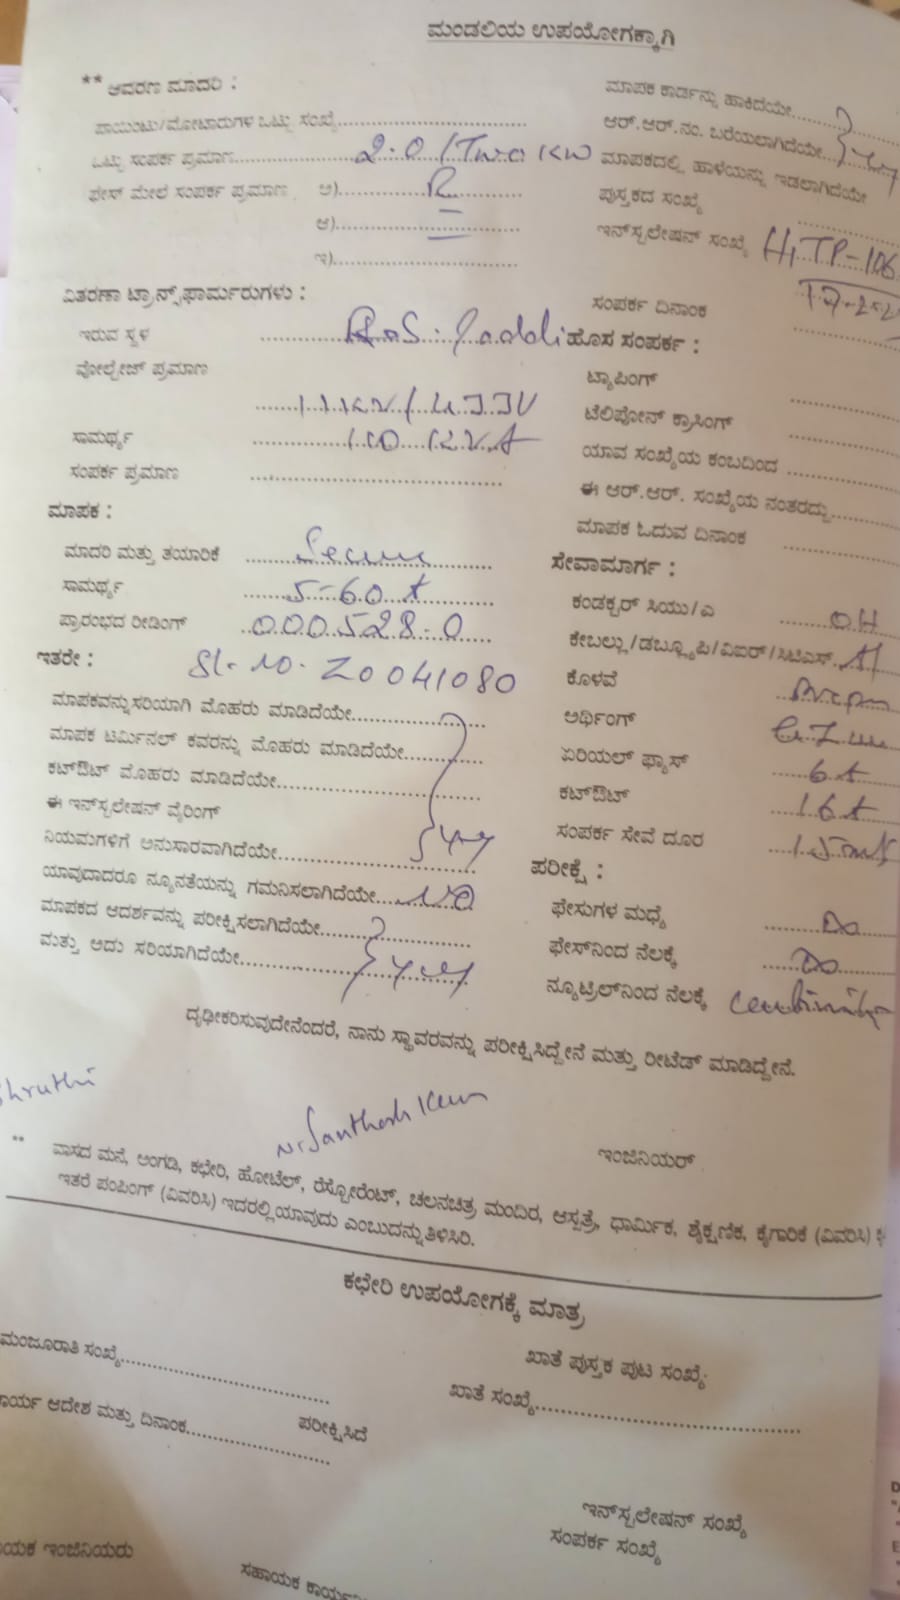 ಮಂಡಲಿಯ ಉಪಯೋಗಕ್ಕಾಗಿ
** ಆವರಣ ಮಾದರಿ :
ಪಾಯಿಂಟು/ಮೋಟಾರುಗಳ ಒಟ್ಟು ಸಂಖ್ಯೆ
ಒಟ್ಟು ಸಂಪರ್ಕ ಪ್ರಮಾಣ 2.0/Two KW
ಫೇಸ್ ಮೇಲೆ ಸಂಪರ್ಕ ಪ್ರಮಾಣ ಅ) R
ಆ) –
ಇ)
ವಿತರಣಾ ಟ್ರಾನ್ಸ್‌ಫಾರ್ಮರುಗಳು :
ಇರುವ ಸ್ಥಳ
ವೋಲ್ಟೇಜ್ ಪ್ರಮಾಣ
11KV/433V
ಸಾಮರ್ಥ್ಯ 100 KVA
ಸಂಪರ್ಕ ಪ್ರಮಾಣ
ಮಾಪಕ :
ಮಾದರಿ ಮತ್ತು ತಯಾರಿಕೆ Secure
ಸಾಮರ್ಥ್ಯ 5-60 A
ಪ್ರಾರಂಭದ ರೀಡಿಂಗ್ 000528.0
ಇತರೇ : Sl. no. Z0041080
ಮಾಪಕವನ್ನು ಸರಿಯಾಗಿ ಮೊಹರು ಮಾಡಿದೆಯೇ
ಮಾಪಕ ಟರ್ಮಿನಲ್ ಕವರನ್ನು ಮೊಹರು ಮಾಡಿದೆಯೇ
ಕಟ್‌ಔಟ್ ಮೊಹರು ಮಾಡಿದೆಯೇ
ಈ ಇನ್‌ಸ್ಟಲೇಷನ್ ವೈರಿಂಗ್
ನಿಯಮಗಳಿಗೆ ಅನುಸಾರವಾಗಿದೆಯೇ yes
ಯಾವುದಾದರೂ ನ್ಯೂನತೆಯನ್ನು ಗಮನಿಸಲಾಗಿದೆಯೇ NO
ಮಾಪಕದ ಆದರ್ಶವನ್ನು ಪರೀಕ್ಷಿಸಲಾಗಿದೆಯೇ
ಮತ್ತು ಅದು ಸರಿಯಾಗಿದೆಯೇ yes
ಮಾಪಕ ಕಾರ್ಡನ್ನು ಹಾಕಿದೆಯೇ
ಆರ್.ಆರ್.ನಂ. ಬರೆಯಲಾಗಿದೆಯೇ yes
ಮಾಪಕದಲ್ಲಿ ಹಾಳೆಯನ್ನು ಇಡಲಾಗಿದೆಯೇ
ಪುಸ್ತಕದ ಸಂಖ್ಯೆ
ಇನ್‌ಸ್ಟಲೇಷನ್ ಸಂಖ್ಯೆ
ಸಂಪರ್ಕ ದಿನಾಂಕ
ಹೊಸ ಸಂಪರ್ಕ :
ಟ್ಯಾಪಿಂಗ್
ಟೆಲಿಪೋನ್ ಕ್ರಾಸಿಂಗ್
ಯಾವ ಸಂಖ್ಯೆಯ ಕಂಬದಿಂದ
ಈ ಆರ್.ಆರ್. ಸಂಖ್ಯೆಯ ನಂತರದ್ದು
ಮಾಪಕ ಓದುವ ದಿನಾಂಕ
ಸೇವಾಮಾರ್ಗ :
ಕಂಡಕ್ಟರ್ ಸಿಯು/ಎ OH
ಕೇಬಲ್ಲು/ಡಬ್ಲ್ಯೂಪಿ/ವಿಐರ್/ಸಿಟಿಎಸ್ Al
ಕೊಳವೆ
ಅರ್ಥಿಂಗ್
ಏರಿಯಲ್ ಫ್ಯೂಸ್ 6 A
ಕಟ್‌ಔಟ್ 16 A
ಸಂಪರ್ಕ ಸೇವೆ ದೂರ
ಪರೀಕ್ಷೆ :
ಫೇಸುಗಳ ಮಧ್ಯೆ ∞
ಫೇಸ್‌ನಿಂದ ನೆಲಕ್ಕೆ ∞
ನ್ಯೂಟ್ರಲ್‌ನಿಂದ ನೆಲಕ್ಕೆ
ದೃಢೀಕರಿಸುವುದೇನೆಂದರೆ, ನಾನು ಸ್ಥಾವರವನ್ನು ಪರೀಕ್ಷಿಸಿದ್ದೇನೆ ಮತ್ತು ರೀಟೆಡ್ ಮಾಡಿದ್ದೇನೆ.
Shruthi
N. Santhosh Kumar
ಇಂಜಿನಿಯರ್
** ವಾಸದ ಮನೆ, ಅಂಗಡಿ, ಕಛೇರಿ, ಹೋಟೆಲ್, ರೆಸ್ಟೋರೆಂಟ್, ಚಲನಚಿತ್ರ ಮಂದಿರ, ಆಸ್ಪತ್ರೆ, ಧಾರ್ಮಿಕ, ಶೈಕ್ಷಣಿಕ, ಕೈಗಾರಿಕೆ (ವಿವರಿಸಿ)
ಇತರೆ ಪಂಪಿಂಗ್ (ವಿವರಿಸಿ) ಇದರಲ್ಲಿ ಯಾವುದು ಎಂಬುದನ್ನು ತಿಳಿಸಿರಿ.
ಕಛೇರಿ ಉಪಯೋಗಕ್ಕೆ ಮಾತ್ರ
ಮಂಜೂರಾತಿ ಸಂಖ್ಯೆ
ಖಾತೆ ಪುಸ್ತಕ ಪುಟ ಸಂಖ್ಯೆ
ಖಾತೆ ಸಂಖ್ಯೆ
ಕಾರ್ಯ ಆದೇಶ ಮತ್ತು ದಿನಾಂಕ
ಪರೀಕ್ಷಿಸಿದೆ
ಇನ್‌ಸ್ಟಲೇಷನ್ ಸಂಖ್ಯೆ
ಸಂಪರ್ಕ ಸಂಖ್ಯೆ
ಇಂಜಿನಿಯರು
ಸಹಾಯಕ